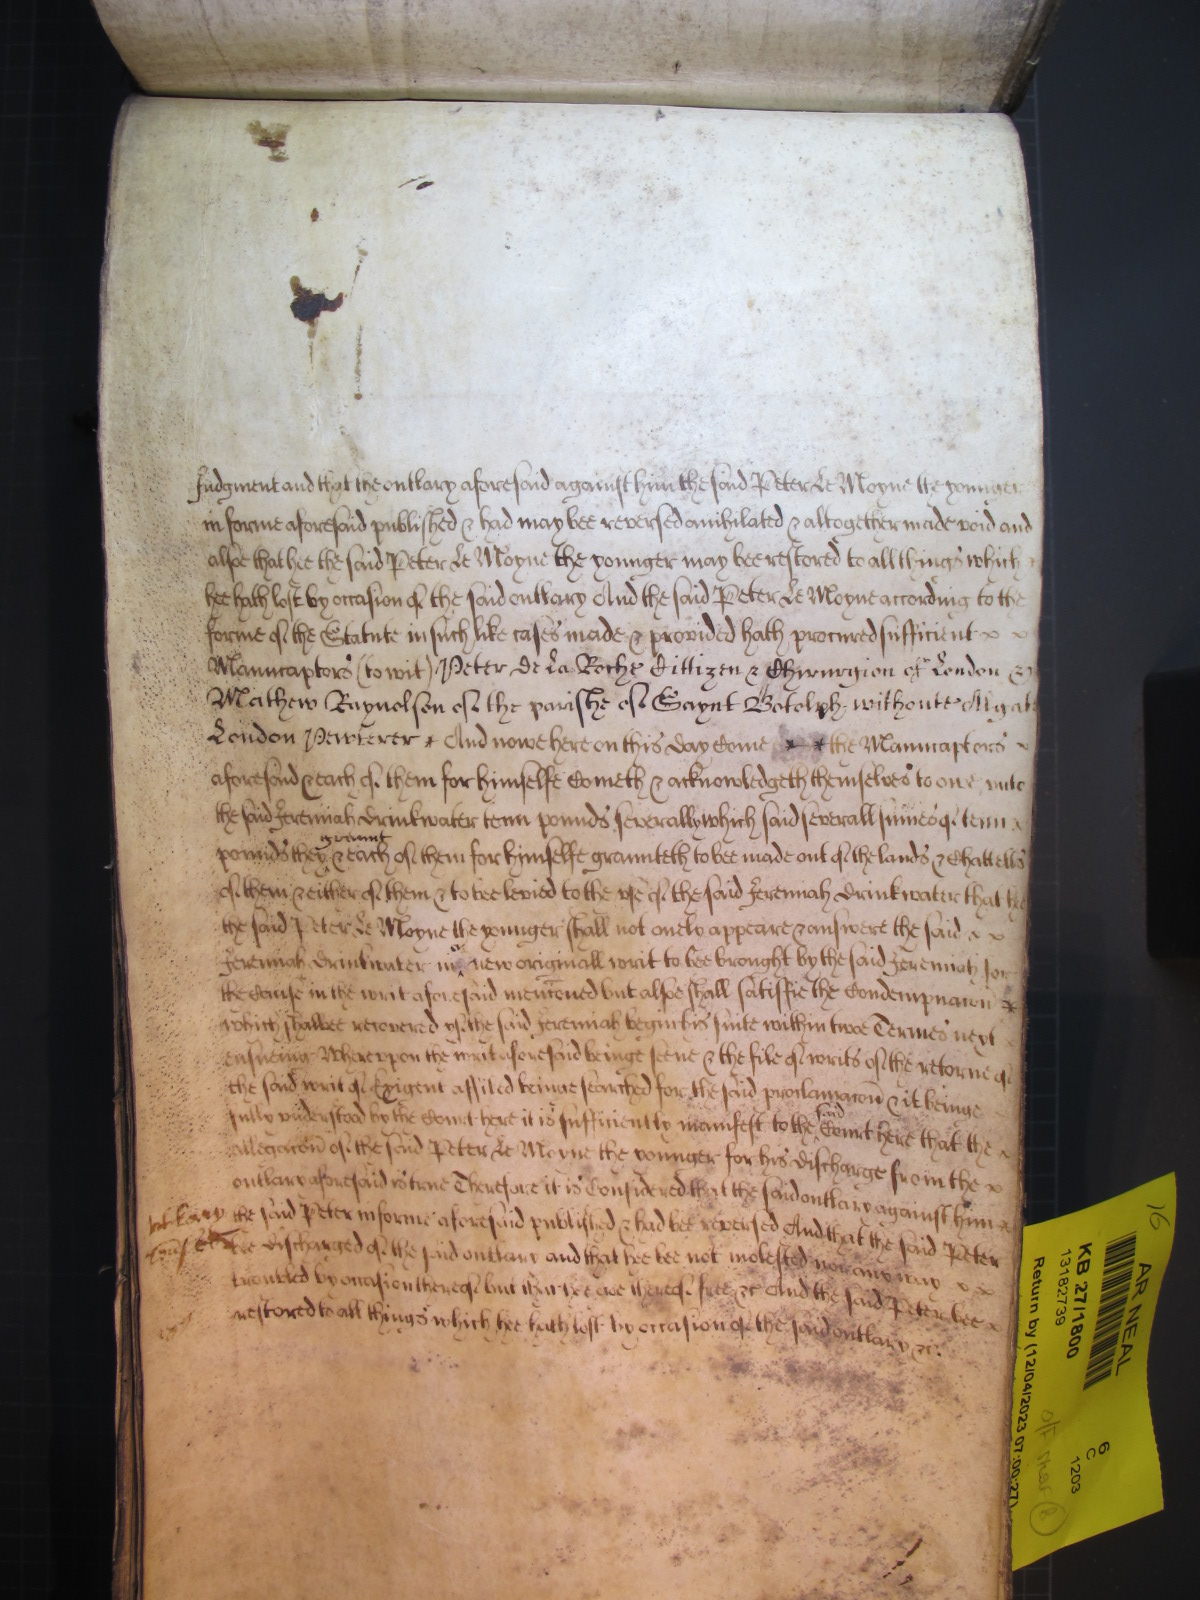 Judgment and that the outlary aforesaid against him the said Peter Le Moyne the younger
in forme aforesaid published & had may bee reversed anihilated & altogether made void and
alsoe that hee the said Peter Le Moyne the younger may bee restored to all things which
hee hath lost by occasion of the said outlary And the said Peter Le Moyne according to the
forme of the Statute in such like cases made & provided hath procured sufficient
Manucaptors (to wit) Peter De La Roche Cittizen & Chirurgion of London &
Mathew Raynolson of the parishe of Saynt Botolph withoute Algate
London Pewterer And nowe here on this day Come the Manucaptors
aforesaid & each of them for himselfe Cometh & acknowledgeth themselves to owe unto
the said Jeremiah Drinkwater tenn pounds severally which said severall summes of tenn
graunt
pounds they & each of them for himselfe graunteth to bee made out of the lands & Chattells
of them & either of them & to bee levied to the use of the said Jeremiah Drinkwater that
the said Peter Le Moyne the younger shall not onely appeare & answere the said
Jeremiah Drinkwater in a new originall writ to bee brought by the said Jeremiah for
the Cause in the writ aforesaid mencioned but alsoe shall satisfie the Condempnacon
which shalbee recovered yf the said Jeremiah begin his suite within twoe Termes next
ensueing Whereupon the writ aforesaid beinge seene & the file of writs of the retorne of
the said writ of Exigent affiled beinge searched for the said proclamacon & it beinge
said
fully understood by the Court here it is sufficiently manifest to the Court here that the
allegacon of the said Peter Le Moyne the younger for his discharge from the
outlary aforesaid is true Therefore it is Considered that the said outlary against him
the said Peter in forme aforesaid published & had bee reversed And that the said Peter
bee discharged of the said outlary and that hee bee not molested nor any way
troubled by occasion thereof but that hee goe thereof free &c And the said Peter bee
restored to all things which hee hath lost by occasion of the said outlary &c.
16
AR NEAL
KB 27/1800
13182739
Return by (12/04/2023 07:00:27)
6
C
1203